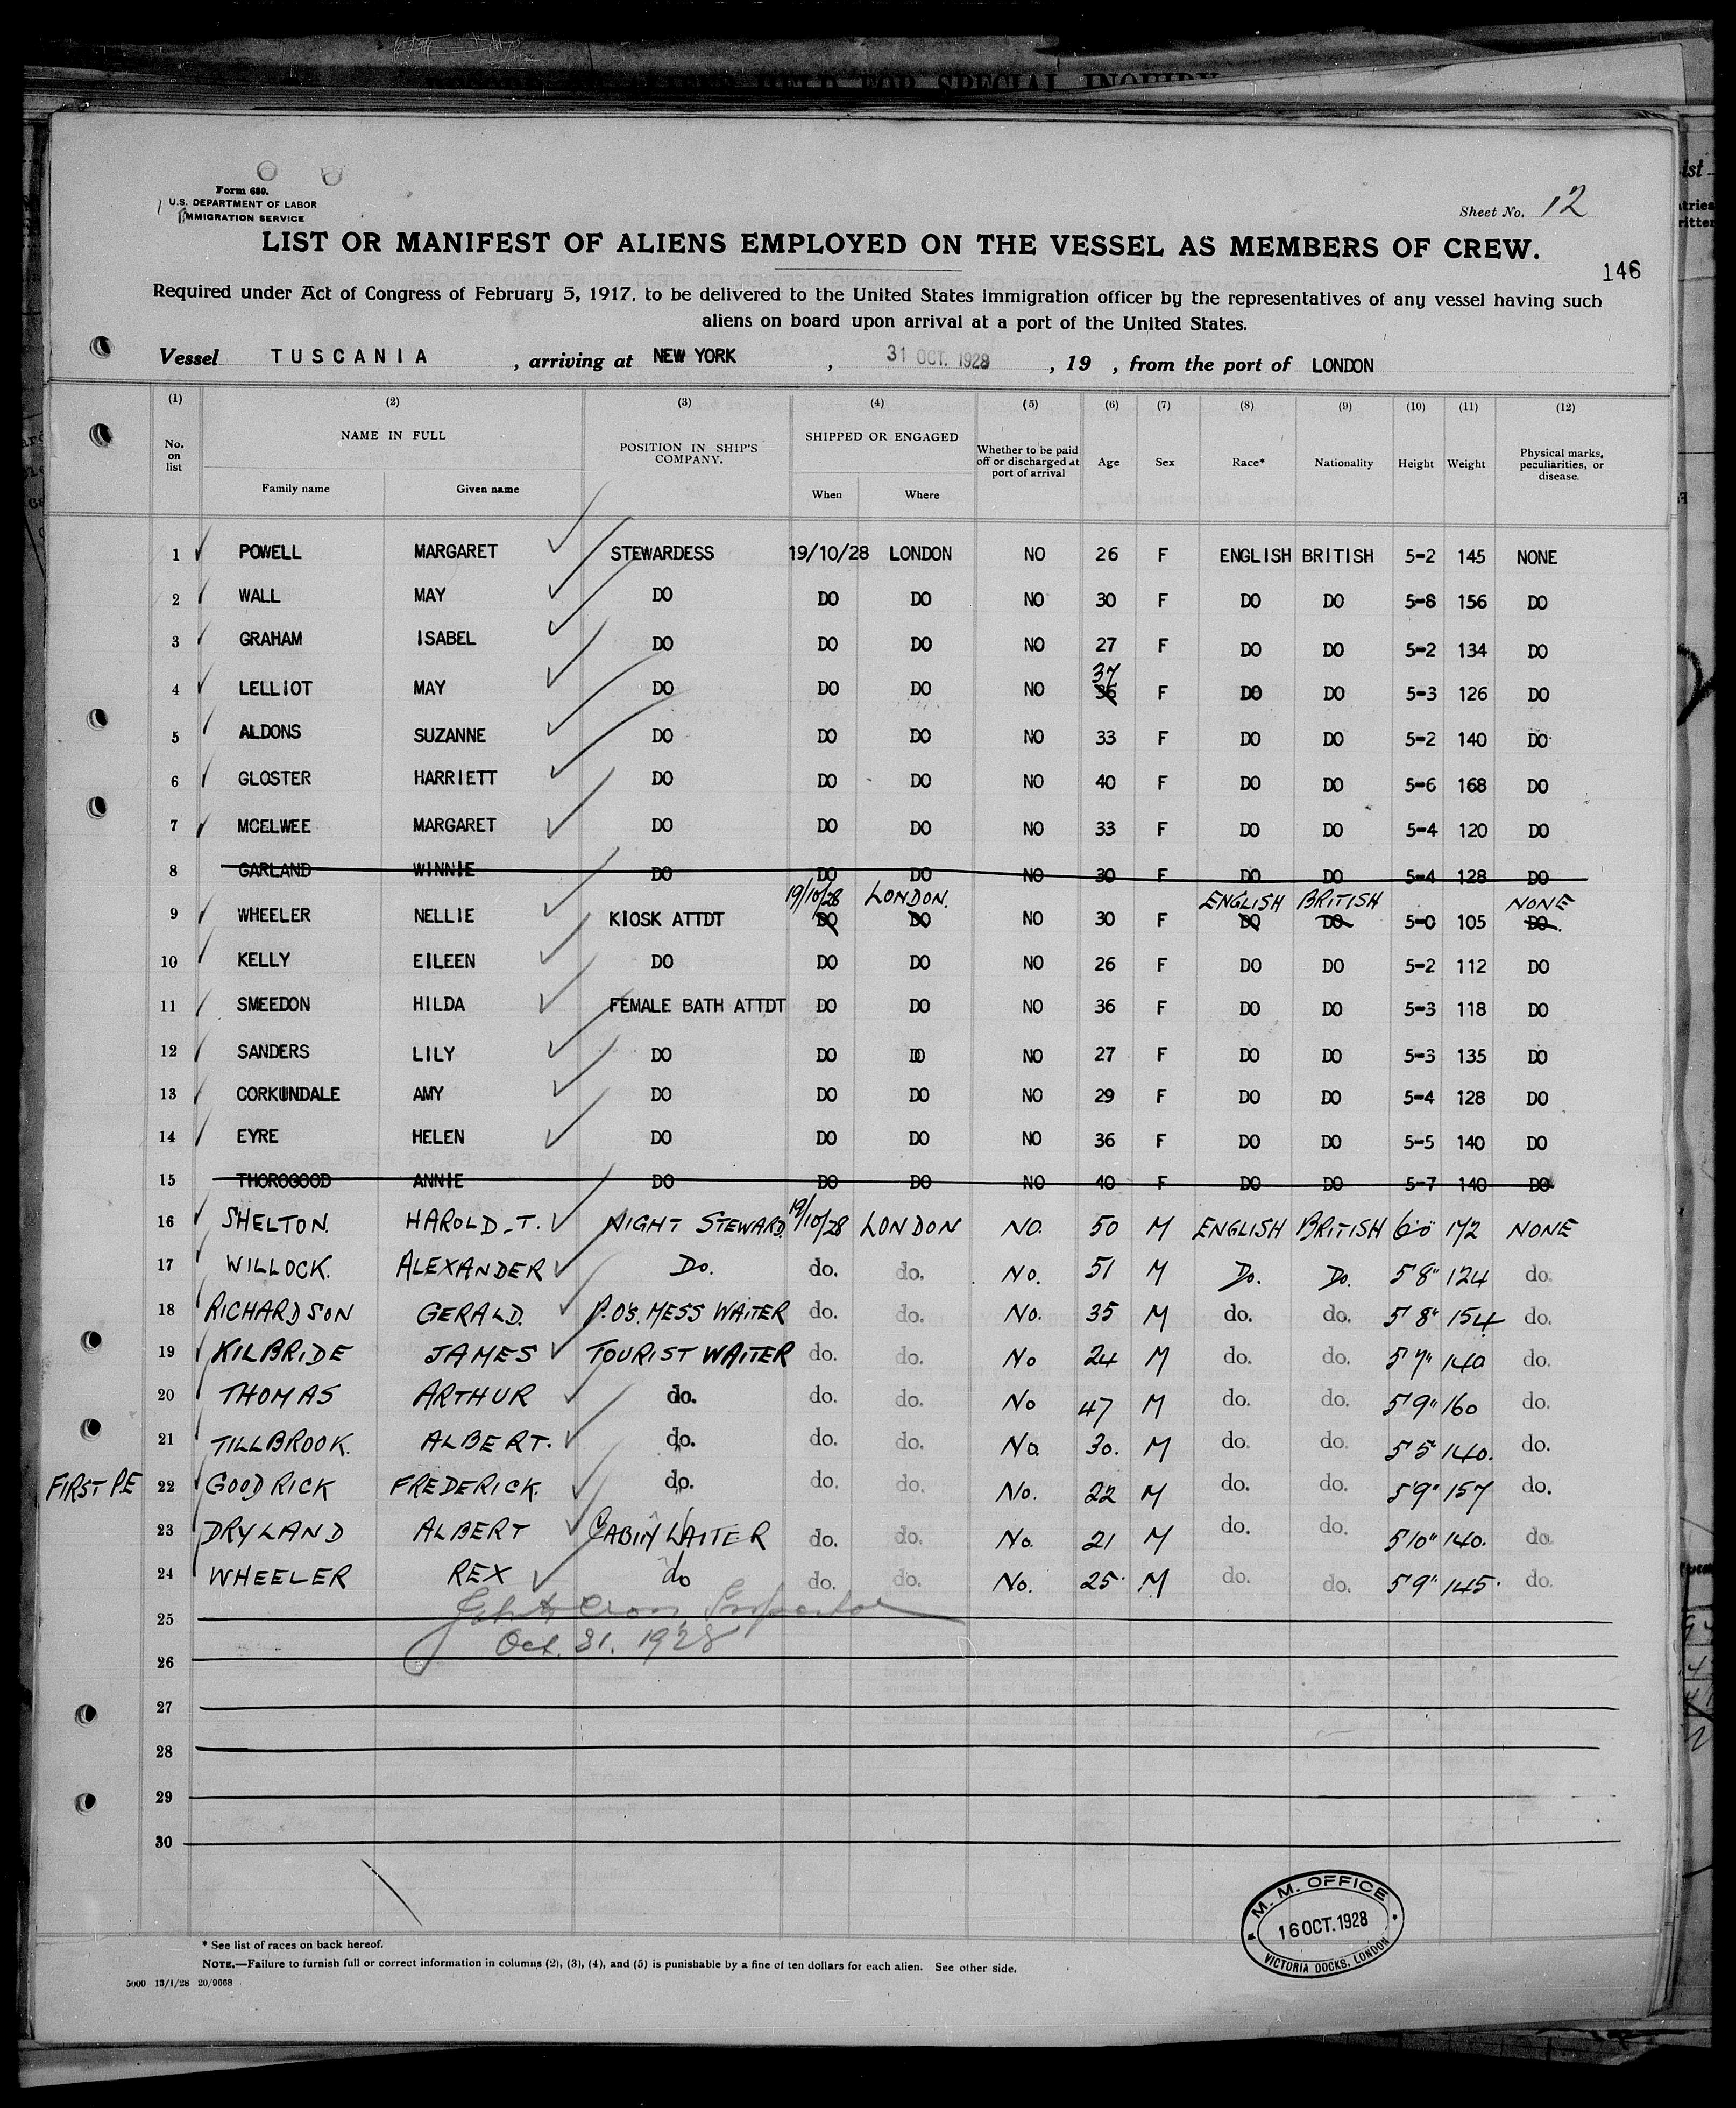 HELD FOR SPECIAL INQUIRY
Form 680.
U.S. DEPARTMENT OF LABOR
IMMIGRATION SERVICE
Sheet No. 12
LIST OR MANIFEST OF ALIENS EMPLOYED ON THE VESSEL AS MEMBERS OF CREW.
146
Required under Act of Congress of February 5, 1917, to be delivered to the United States immigration officer by the representatives of any vessel having such
aliens on board upon arrival at a port of the United States.
Vessel TUSCANIA , arriving at NEW YORK , 31 OCT. 1928 , 19 , from the port of LONDON
(1) (2) (3) (4) (5) (6) (7) (8) (9) (10) (11) (12)
No. on list NAME IN FULL POSITION IN SHIP'S COMPANY. SHIPPED OR ENGAGED Whether to be paid off or discharged at port of arrival Age Sex Race* Nationality Height Weight Physical marks, peculiarities, or disease.
Family name Given name When Where
1 POWELL MARGARET STEWARDESS 19/10/28 LONDON NO 26 F ENGLISH BRITISH 5-2 145 NONE
2 WALL MAY DO DO DO NO 30 F DO DO 5-8 156 DO
3 GRAHAM ISABEL DO DO DO NO 27 F DO DO 5-2 134 DO
37
4 LELLIOT MAY DO DO DO NO 36 F DO DO 5-3 126 DO
5 ALDONS SUZANNE DO DO DO NO 33 F DO DO 5-2 140 DO
6 GLOSTER HARRIETT DO DO DO NO 40 F DO DO 5-6 168 DO
7 MCELWEE MARGARET DO DO DO NO 33 F DO DO 5-4 120 DO
8 GARLAND WINNIE DO DO DO NO 30 F DO DO 5-4 128 DO
19/10/28 LONDON. ENGLISH BRITISH NONE
9 WHEELER NELLIE KIOSK ATTDT DO DO NO 30 F DO DO 5-0 105 DO
10 KELLY EILEEN DO DO DO NO 26 F DO DO 5-2 112 DO
11 SMEEDON HILDA FEMALE BATH ATTDT DO DO NO 36 F DO DO 5-3 118 DO
12 SANDERS LILY DO DO DO NO 27 F DO DO 5-3 135 DO
13 CORKUNDALE AMY DO DO DO NO 29 F DO DO 5-4 128 DO
14 EYRE HELEN DO DO DO NO 36 F DO DO 5-5 140 DO
15 THOROGOOD ANNIE DO DO DO NO 40 F DO DO 5-7 140 DO
16 SHELTON. HAROLD-T. NIGHT STEWARD. 19/10/28 LONDON NO. 50 M ENGLISH BRITISH 6'0" 172 NONE
17 WILLOCK. ALEXANDER Do. do. do. No. 51 M Do. Do. 5'8" 124 do.
18 RICHARDSON GERALD. P.O'S. MESS WAITER do. do. No. 35 M do. do. 5'8" 154 do.
19 KILBRIDE JAMES TOURIST WAITER do. do. No 24 M do. do. 5'7" 140 do.
20 THOMAS ARTHUR do. do. do. No 47 M do. do. 5'9" 160 do.
21 TILLBROOK. ALBERT. do. do. do. No. 30. M do. do. 5'5" 140. do.
FIRST P.E 22 GOODRICK FREDERICK. do. do. do. No. 22 M do. do. 5'9" 157 do.
23 DRYLAND ALBERT CABIN WAITER do. do. No. 21 M do. do. 5'10" 140. do
24 WHEELER REX do do. do. No. 25. M do. do. 5'9" 145. do.
25 Inspector
26 Oct. 31. 1928
27
28
29
30
M. M. OFFICE
16 OCT. 1928
VICTORIA DOCKS, LONDON
* See list of races on back hereof.
NOTE.—Failure to furnish full or correct information in columns (2), (3), (4), and (5) is punishable by a fine of ten dollars for each alien. See other side.
5000 13/1/28 20/9668